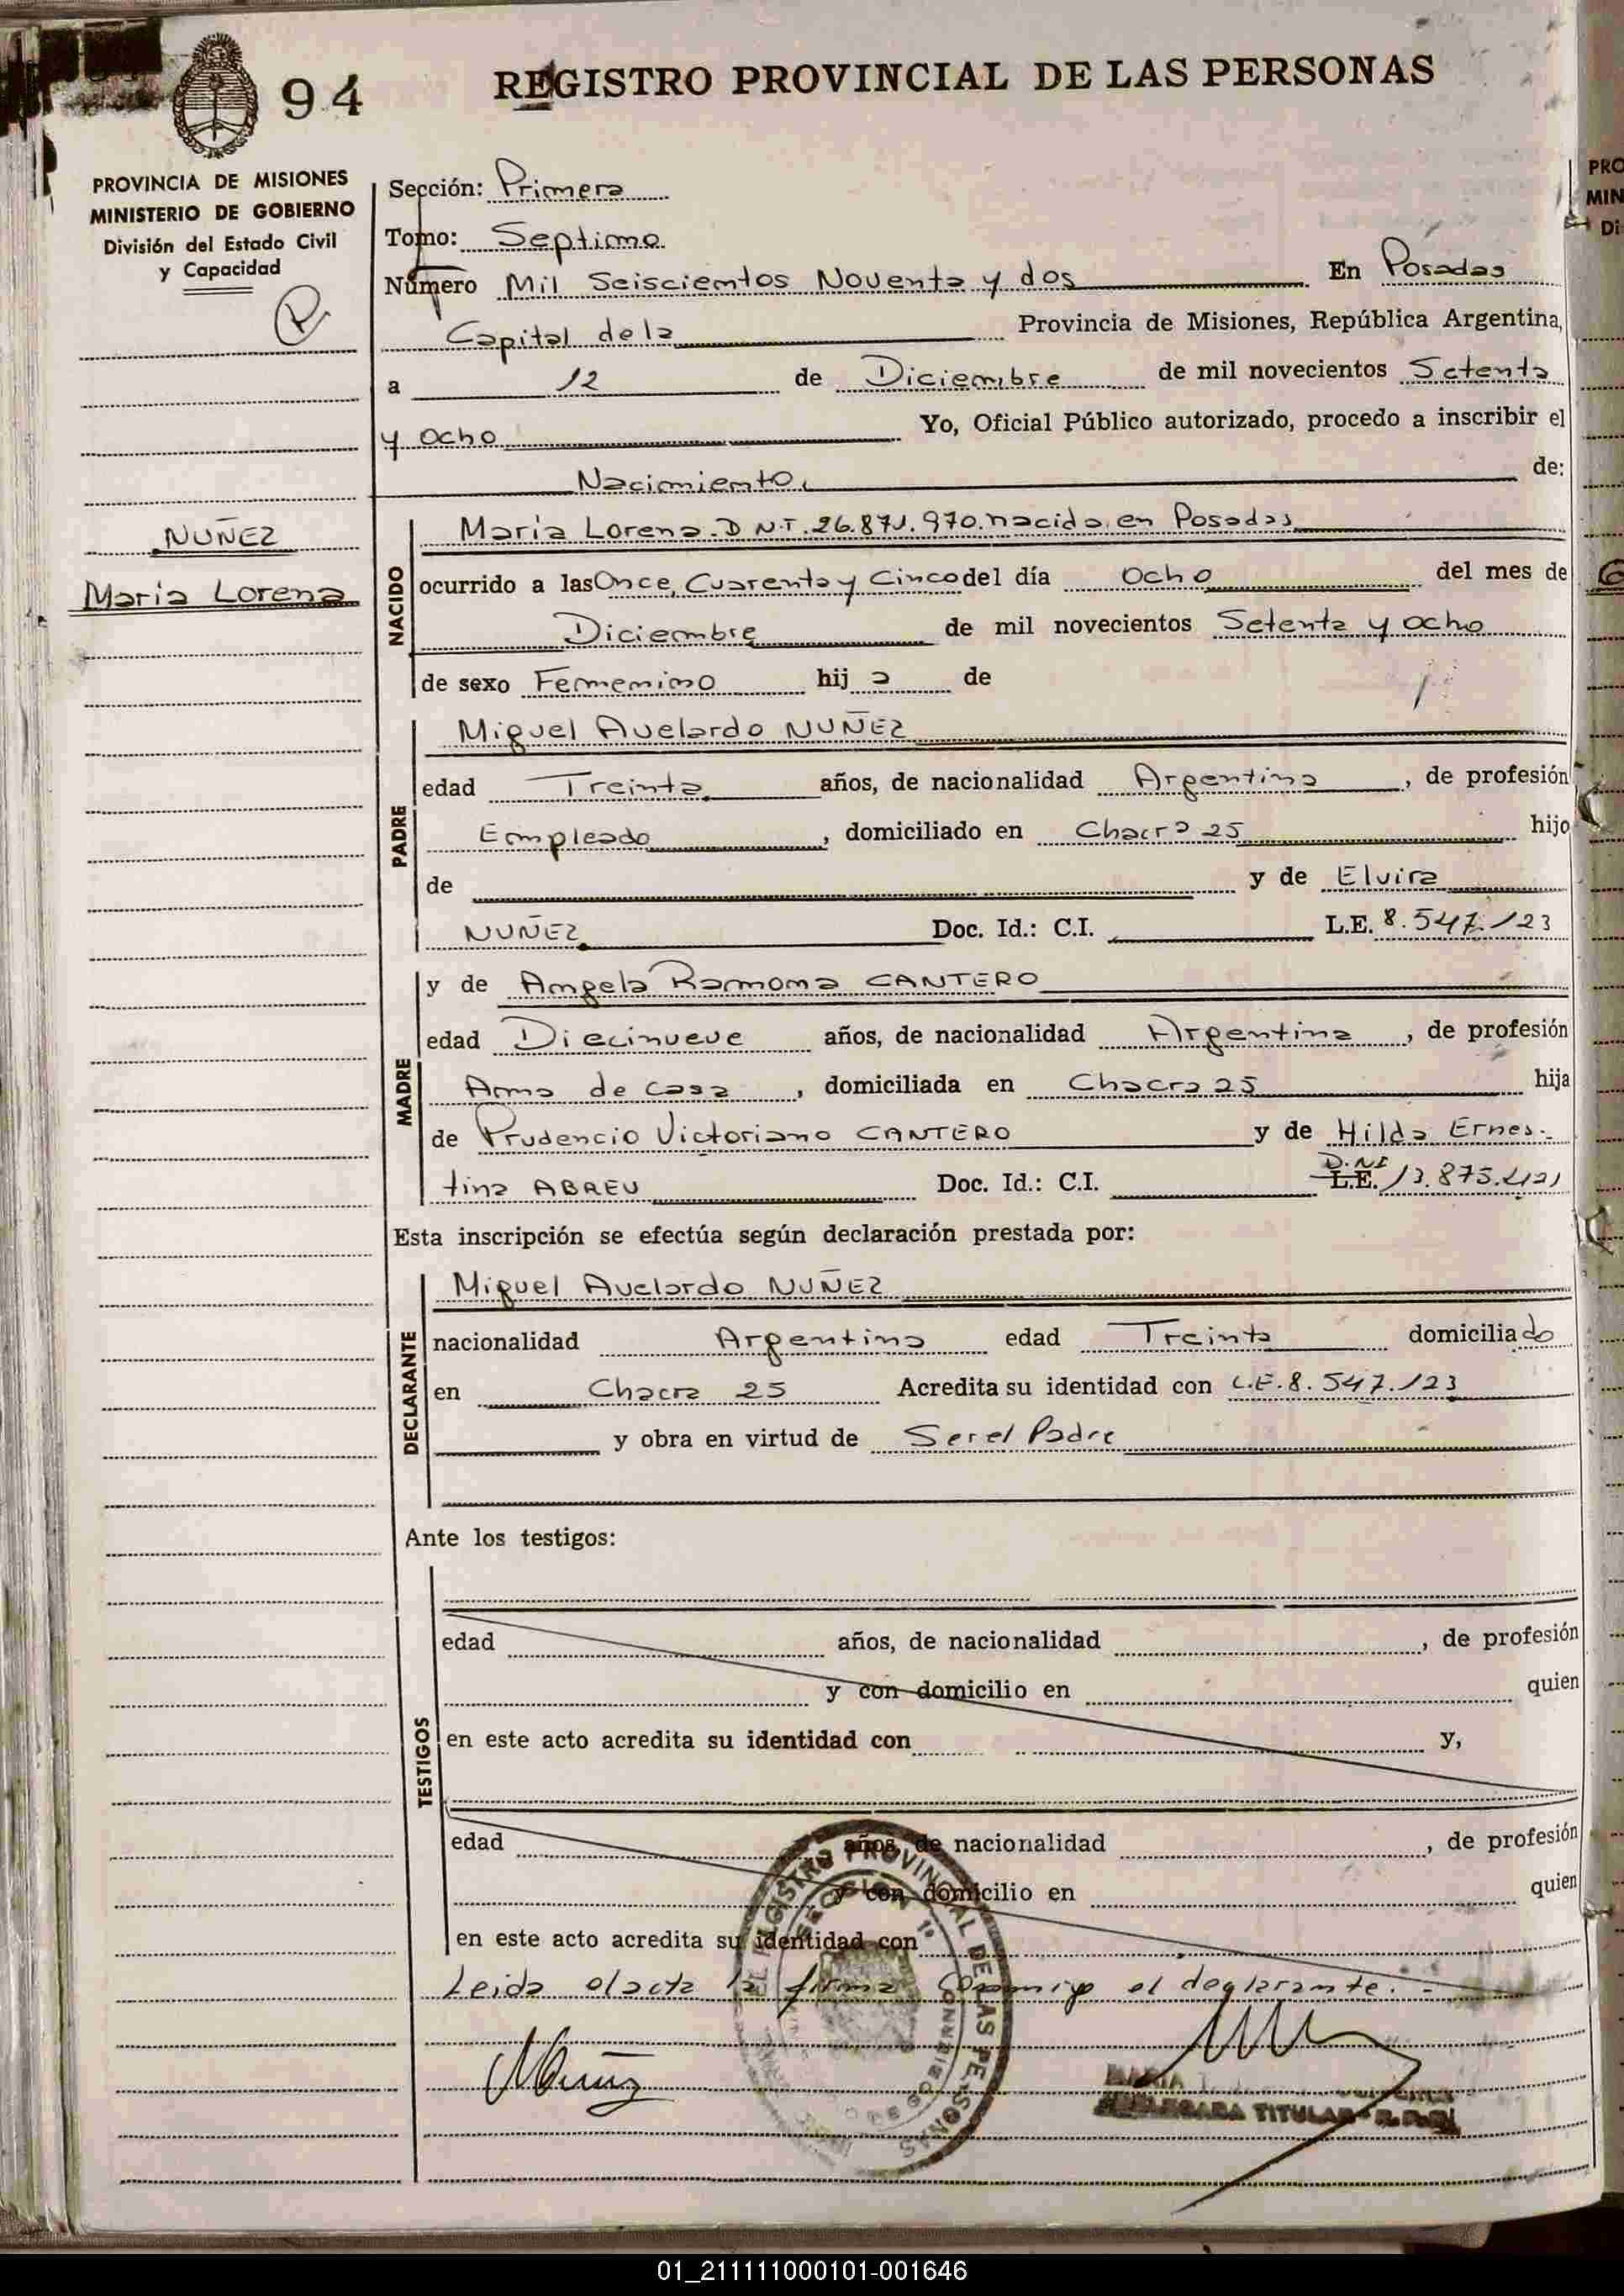 94
REGISTRO PROVINCIAL DE LAS PERSONAS
PROVINCIA DE MISIONES
MINISTERIO DE GOBIERNO
División del Estado Civil
y Capacidad
NUÑEZ
María Lorena
Sección: Primera
Tomo: Septimo
Número Mil Seiscientos Noventa y dos En Posadas
Capital de la Provincia de Misiones, República Argentina,
a 12 de Diciembre de mil novecientos Setenta
y Ocho Yo, Oficial Público autorizado, procedo a inscribir el
Nacimiento de:
NACIDO
María Lorena. D.N.I. 26.871.970. nacida en Posadas
ocurrido a las Once, Cuarenta y Cinco del día Ocho del mes de
Diciembre de mil novecientos Setenta y Ocho
de sexo Femenino hija de
PADRE
Miguel Avelardo NUÑEZ
edad Treinta años, de nacionalidad Argentina, de profesión
Empleado, domiciliado en Chacra 25 hijo
de y de Elvira
NUÑEZ Doc. Id.: C.I. L.E. 8.547.123
MADRE
y de Angela Ramona CANTERO
edad Diecinueve años, de nacionalidad Argentina, de profesión
Ama de casa, domiciliada en Chacra 25 hija
de Prudencio Victoriano CANTERO y de Hilda Ernes-
tina ABREU Doc. Id.: C.I. L.E. D.N.I 13.875.421
Esta inscripción se efectúa según declaración prestada por:
DECLARANTE
Miguel Avelardo NUÑEZ
nacionalidad Argentina edad Treinta domiciliado
en Chacra 25 Acredita su identidad con L.E. 8.547.123
y obra en virtud de Ser el Padre
Ante los testigos:
TESTIGOS
edad años, de nacionalidad , de profesión
y con domicilio en quien
en este acto acredita su identidad con y,
edad años, de nacionalidad , de profesión
y con domicilio en quien
en este acto acredita su identidad con
Leida el acta la firma Conmigo el declarante.
REGISTRO PROVINCIAL DE LAS PERSONAS
SECCION 1ª
TITULAR
01_211111000101-001646